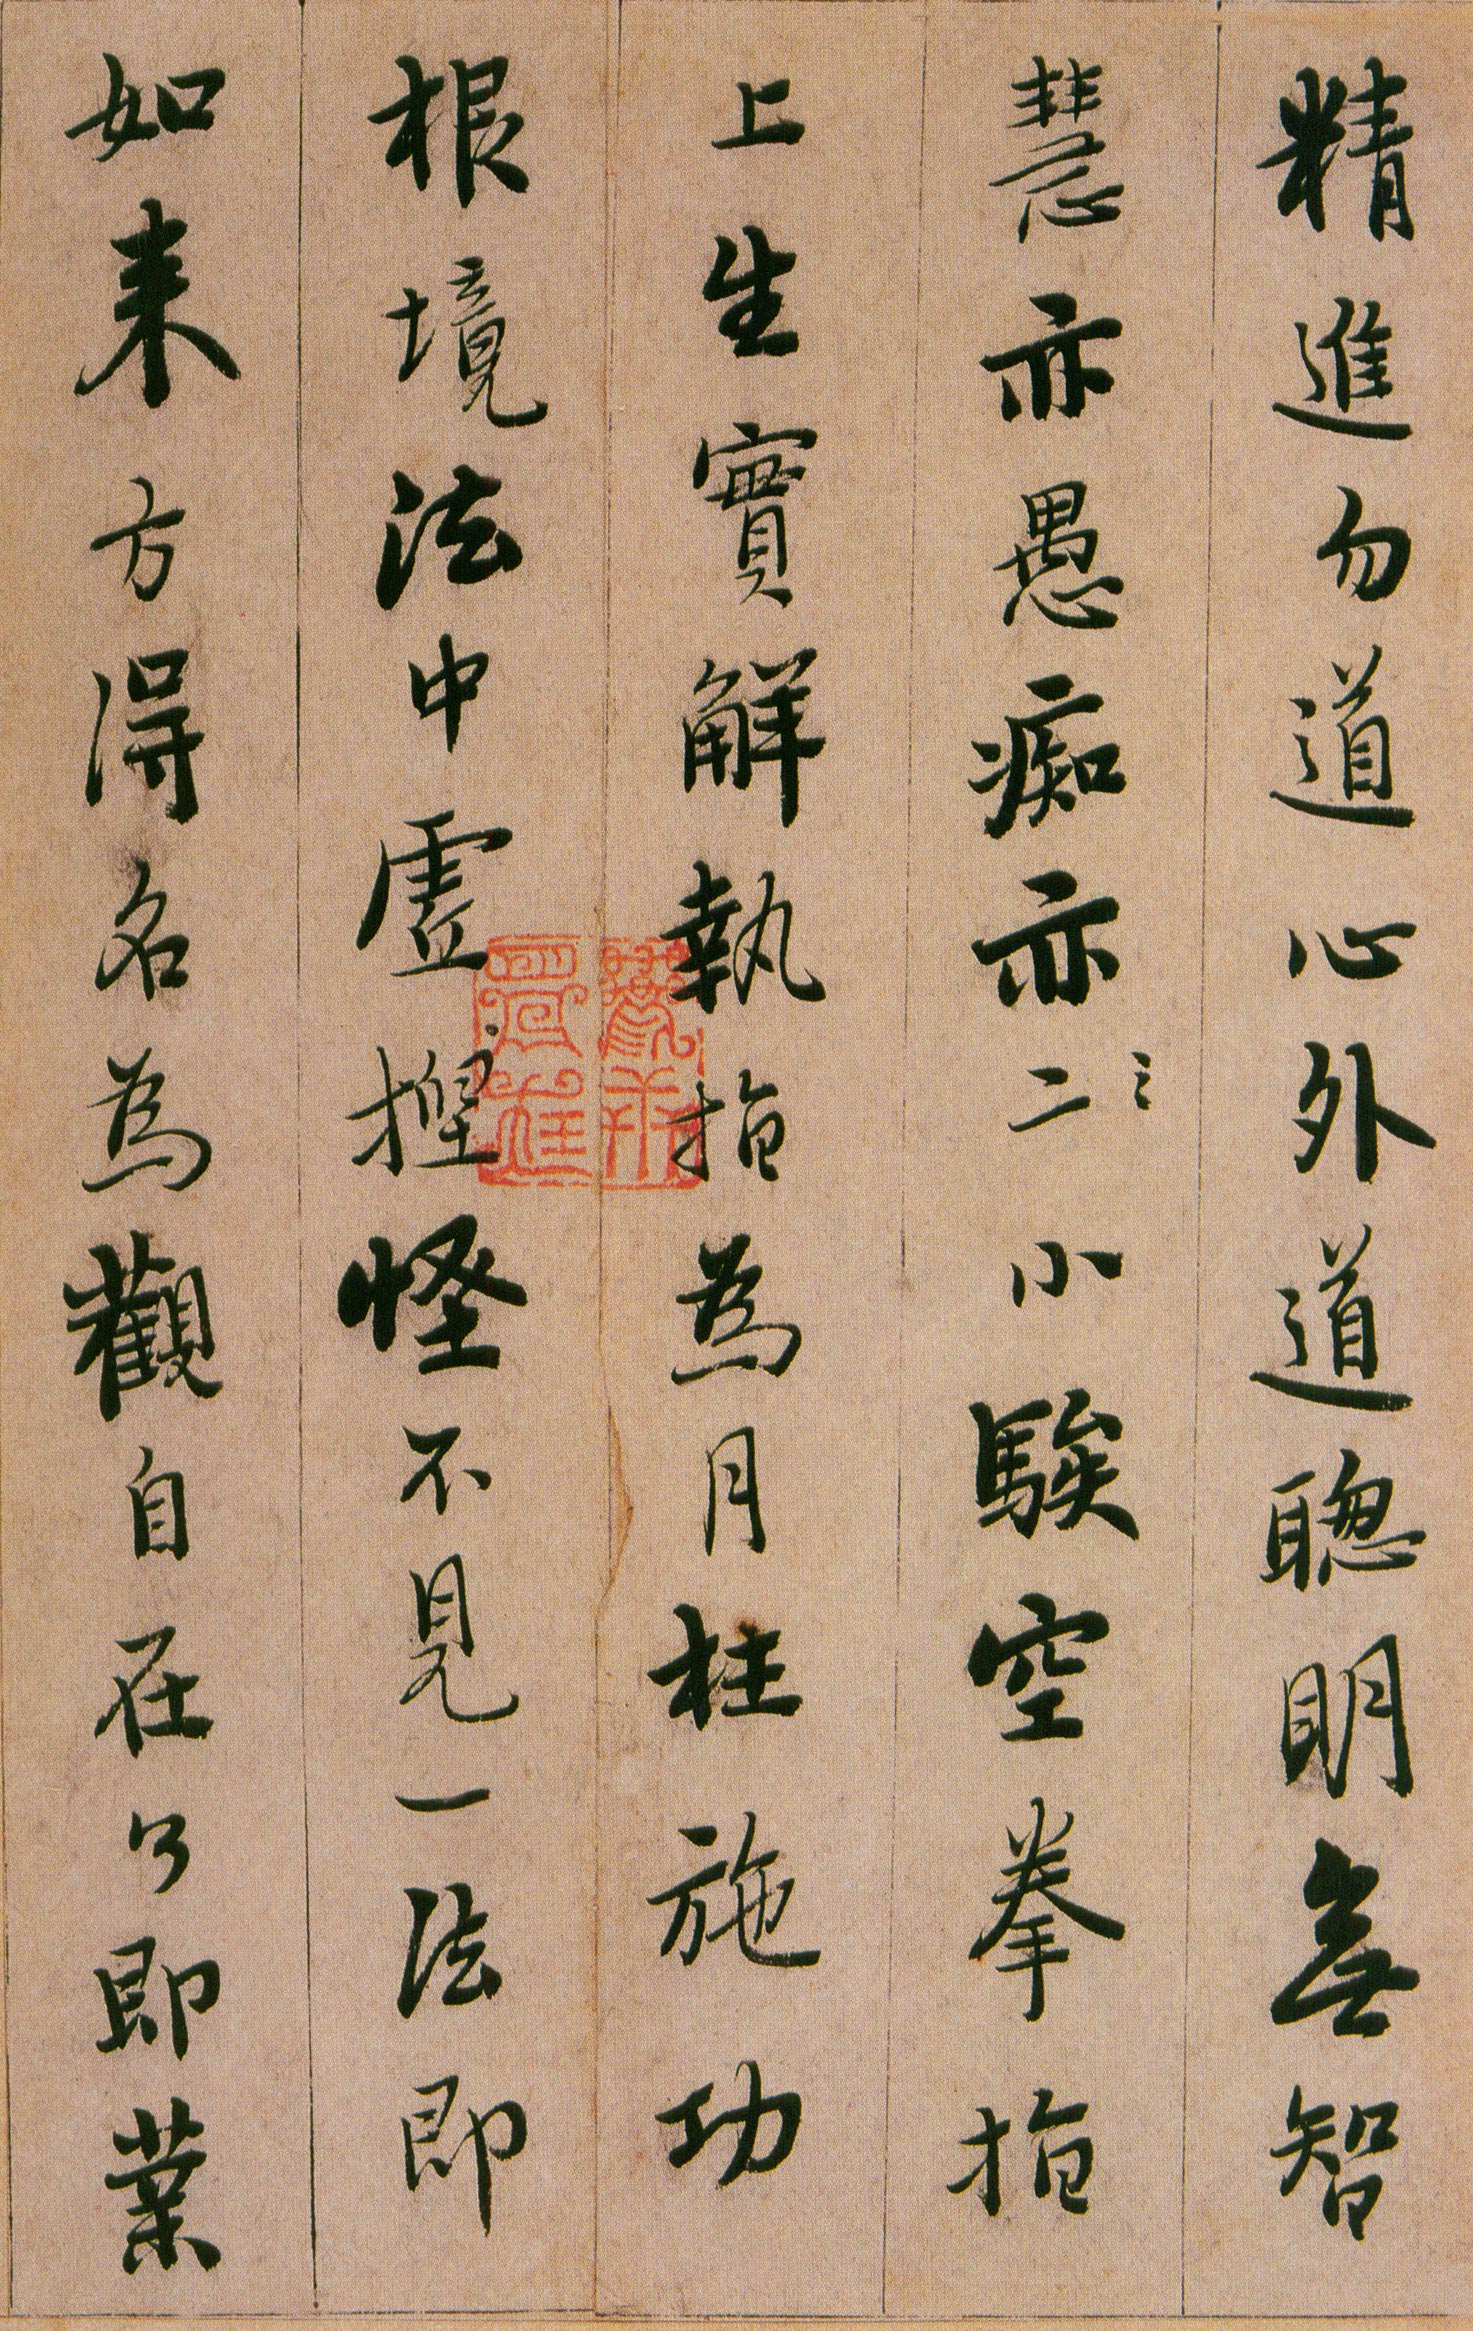 精進勿道心外道聰明無智
慧亦愚癡亦小騃空拳指
上生實解執指為月枉施功
根境法中虛揑怪不見一法即
如来方得名為觀自在了即業